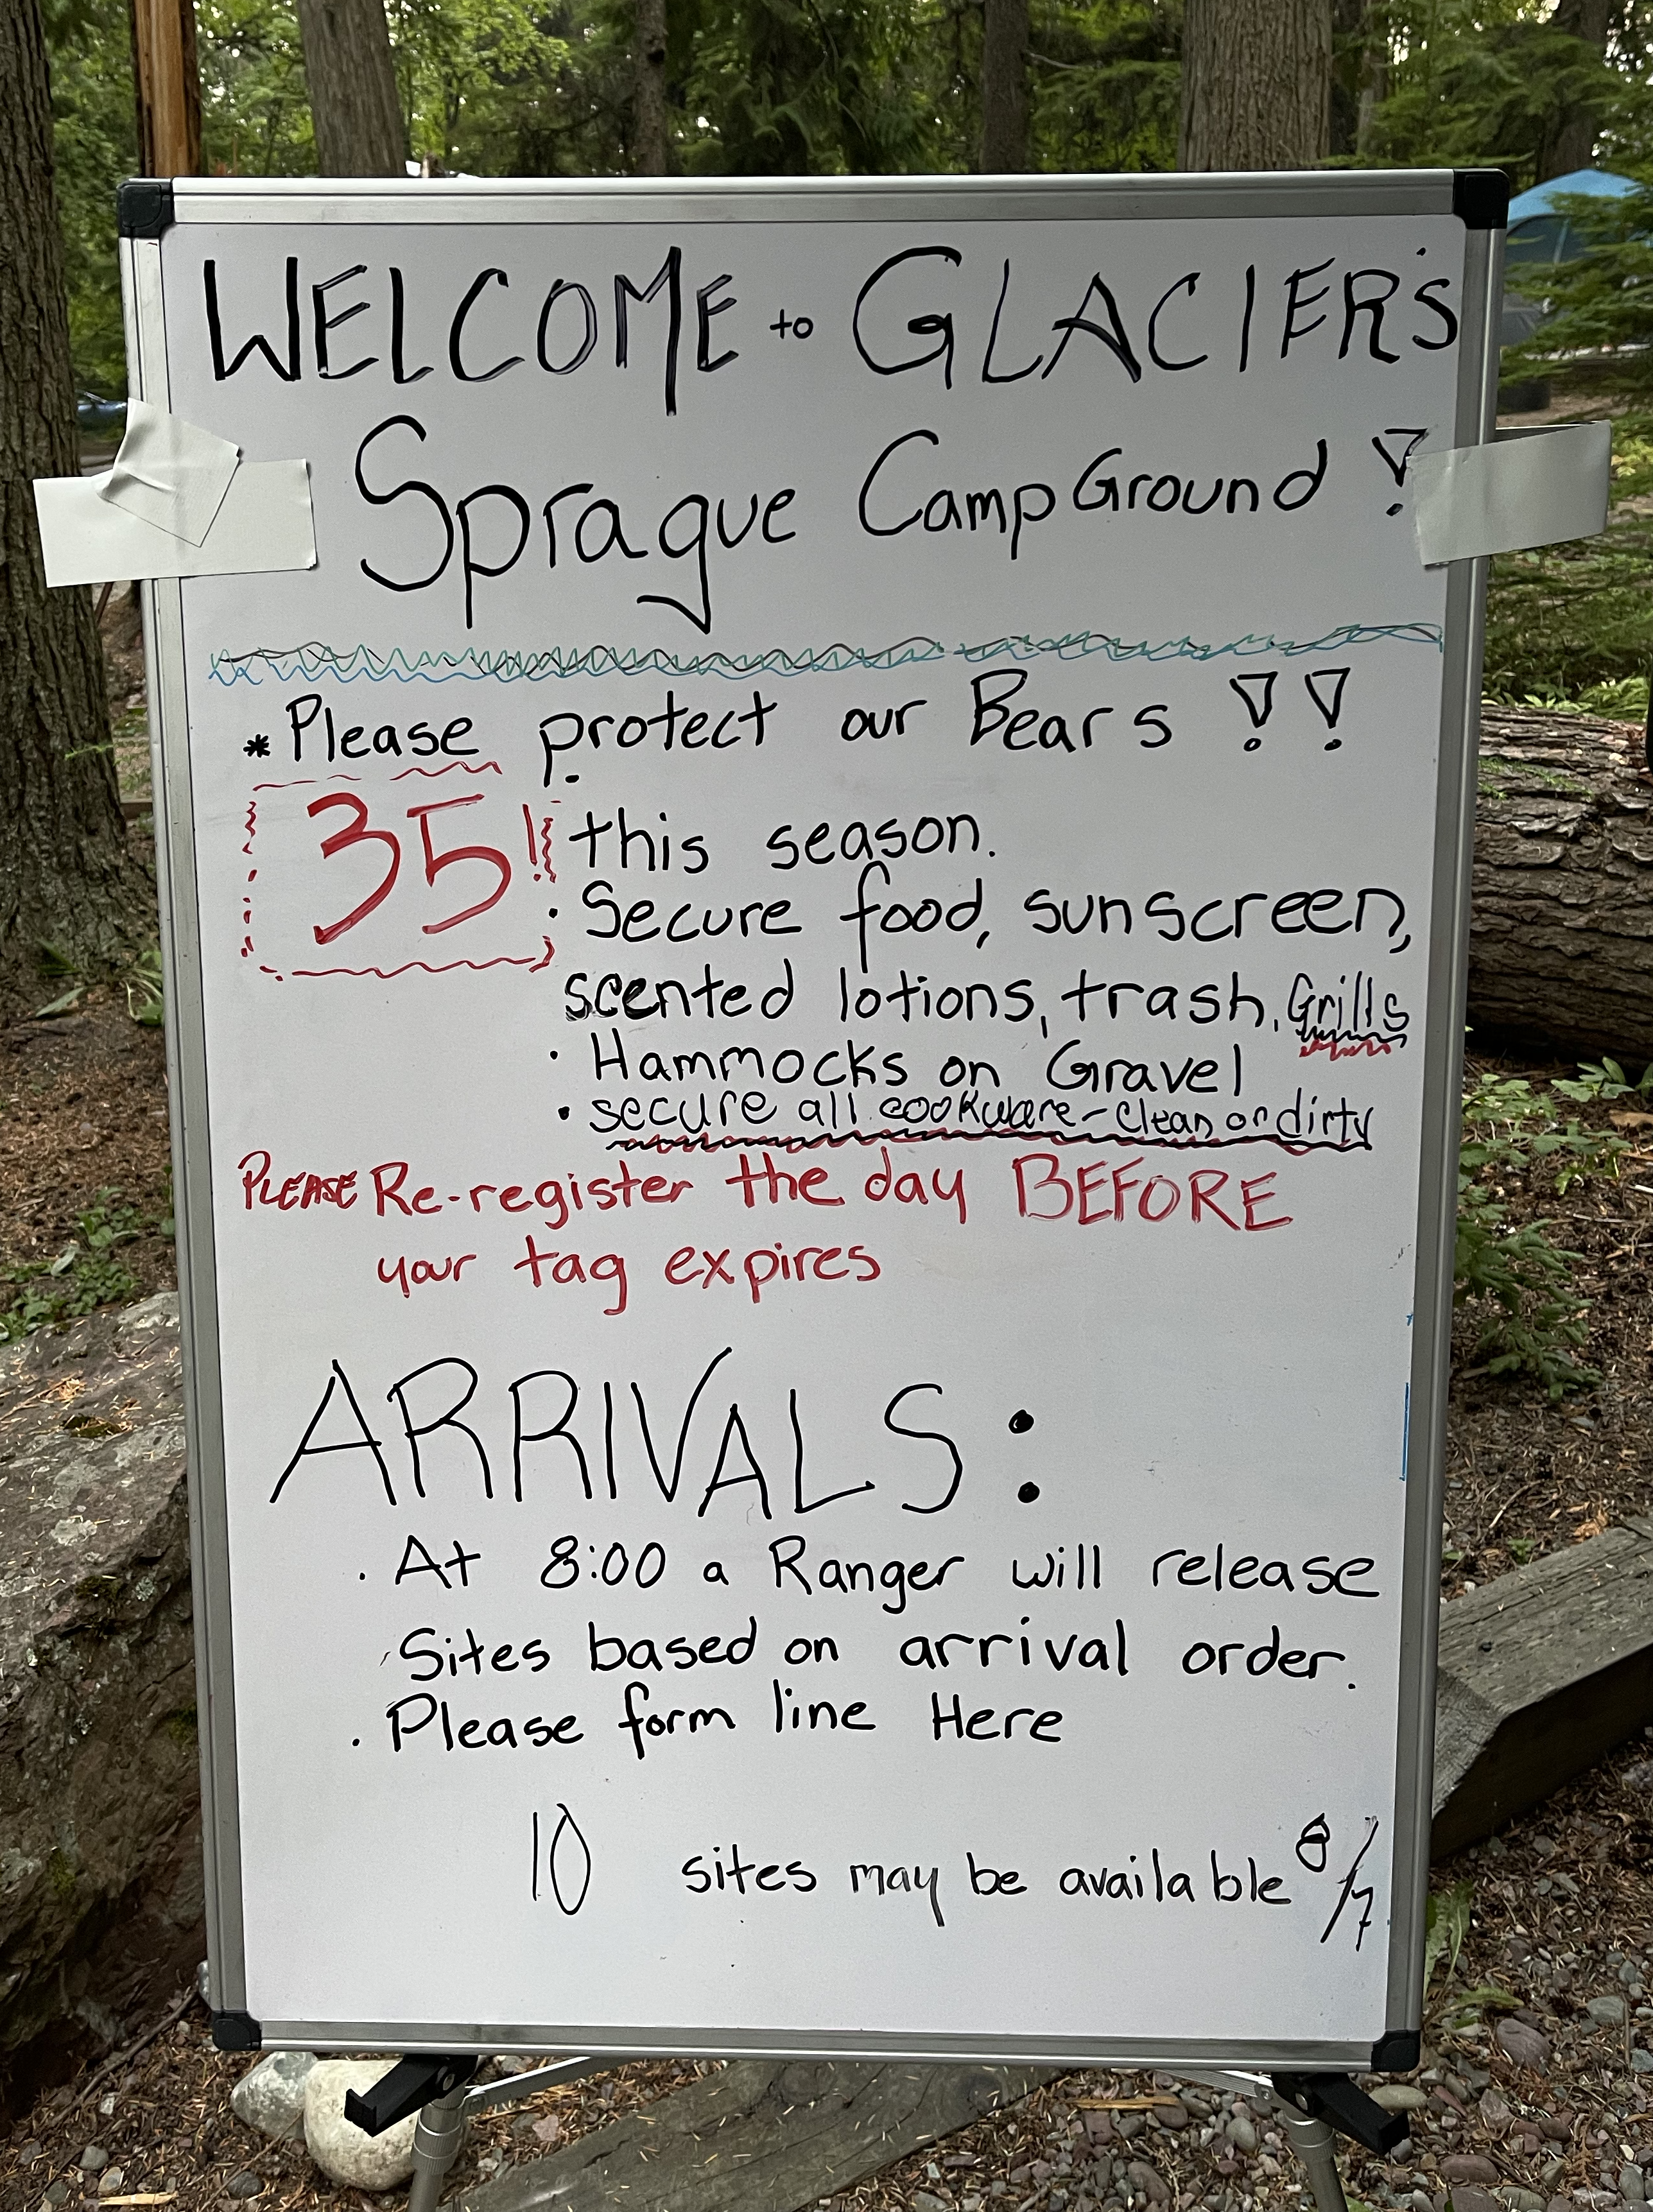 WELCOME to GLACIER'S
Sprague CampGround !
* Please protect our Bears !!
35! this season.
· Secure food, sunscreen,
scented lotions, trash, Grills
· Hammocks on Gravel
· secure all cookware - clean or dirty
PLEASE Re-register the day BEFORE
your tag expires
ARRIVALS:
· At 8:00 a Ranger will release
Sites based on arrival order.
· Please form line Here
10 sites may be available 8/7